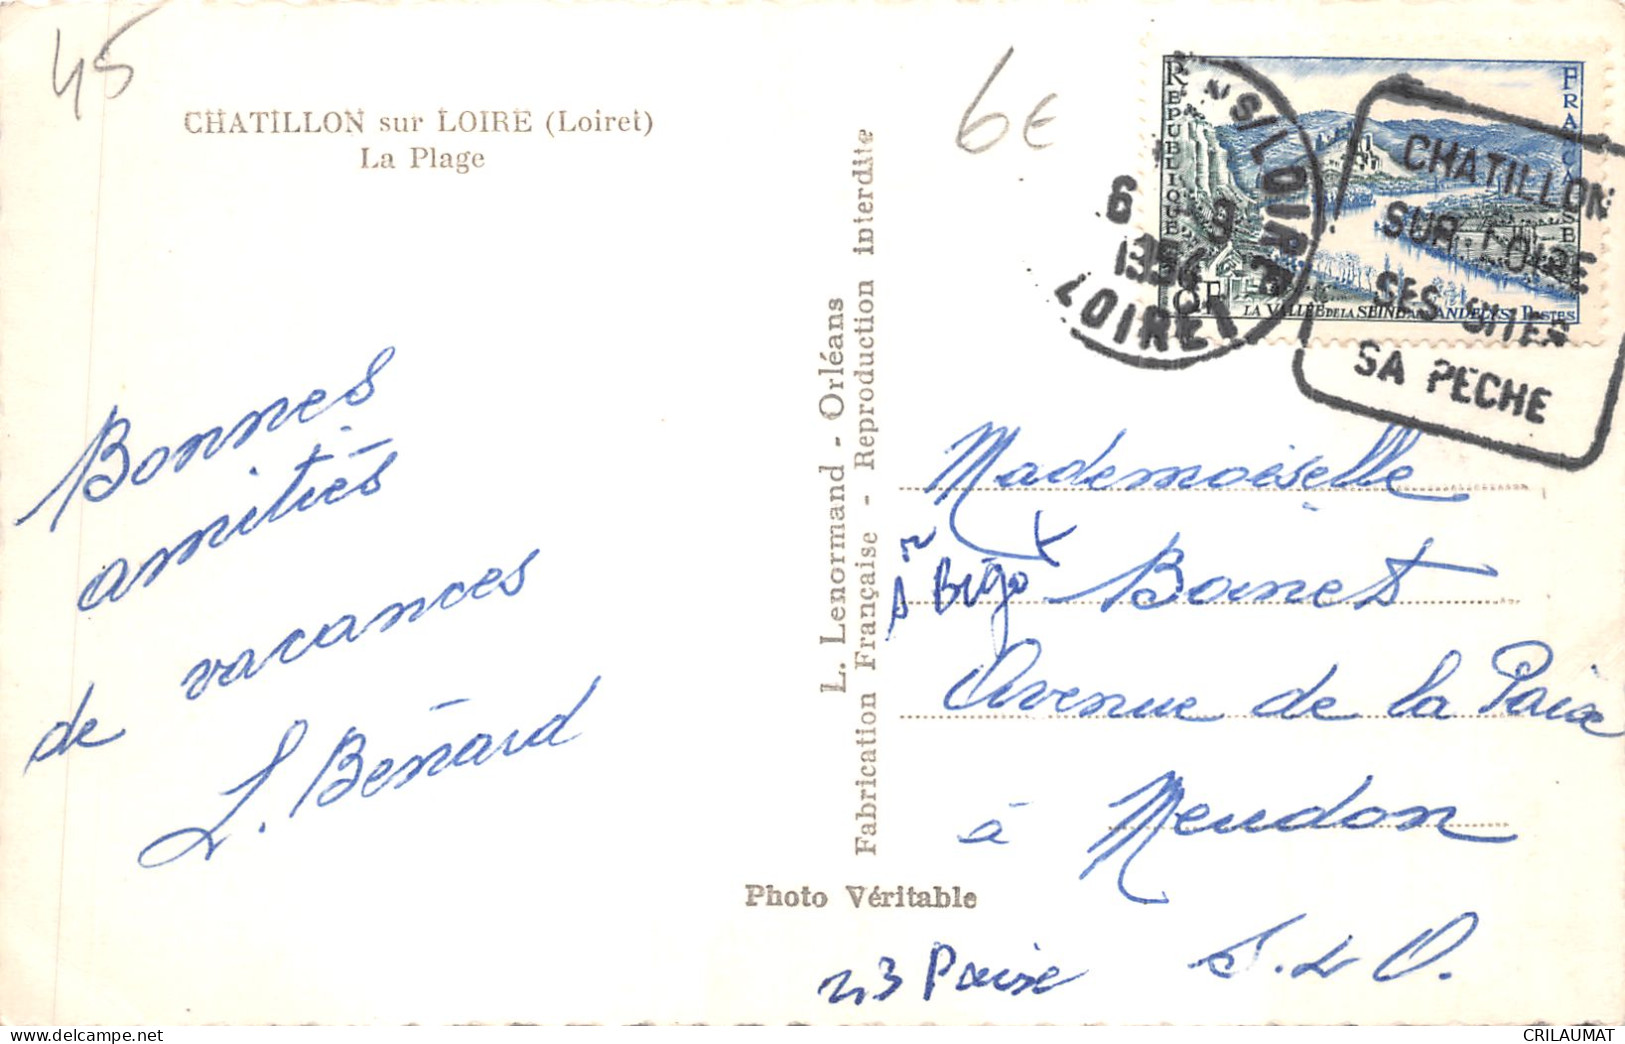 45
CHATILLON sur LOIRE (Loiret)
La Plage
6€
REPUBLIQUE
FRANCAISE
8F
LA VALLEE DE LA SEINE AUX ANDELYS POSTES
S/LOIRE
6 9
1954
LOIRET
CHATILLON
SUR LOIRE
SES SITES
SA PECHE
Bonnes
amitiés
de vacances
L. Bénard
L. Lenormand - Orléans
Fabrication Française - Reproduction interdite
Photo Véritable
Mademoiselle
Boinet
Avenue de la Paix
à Meudon
S. & O.
23 Paix
CRILAUMAT